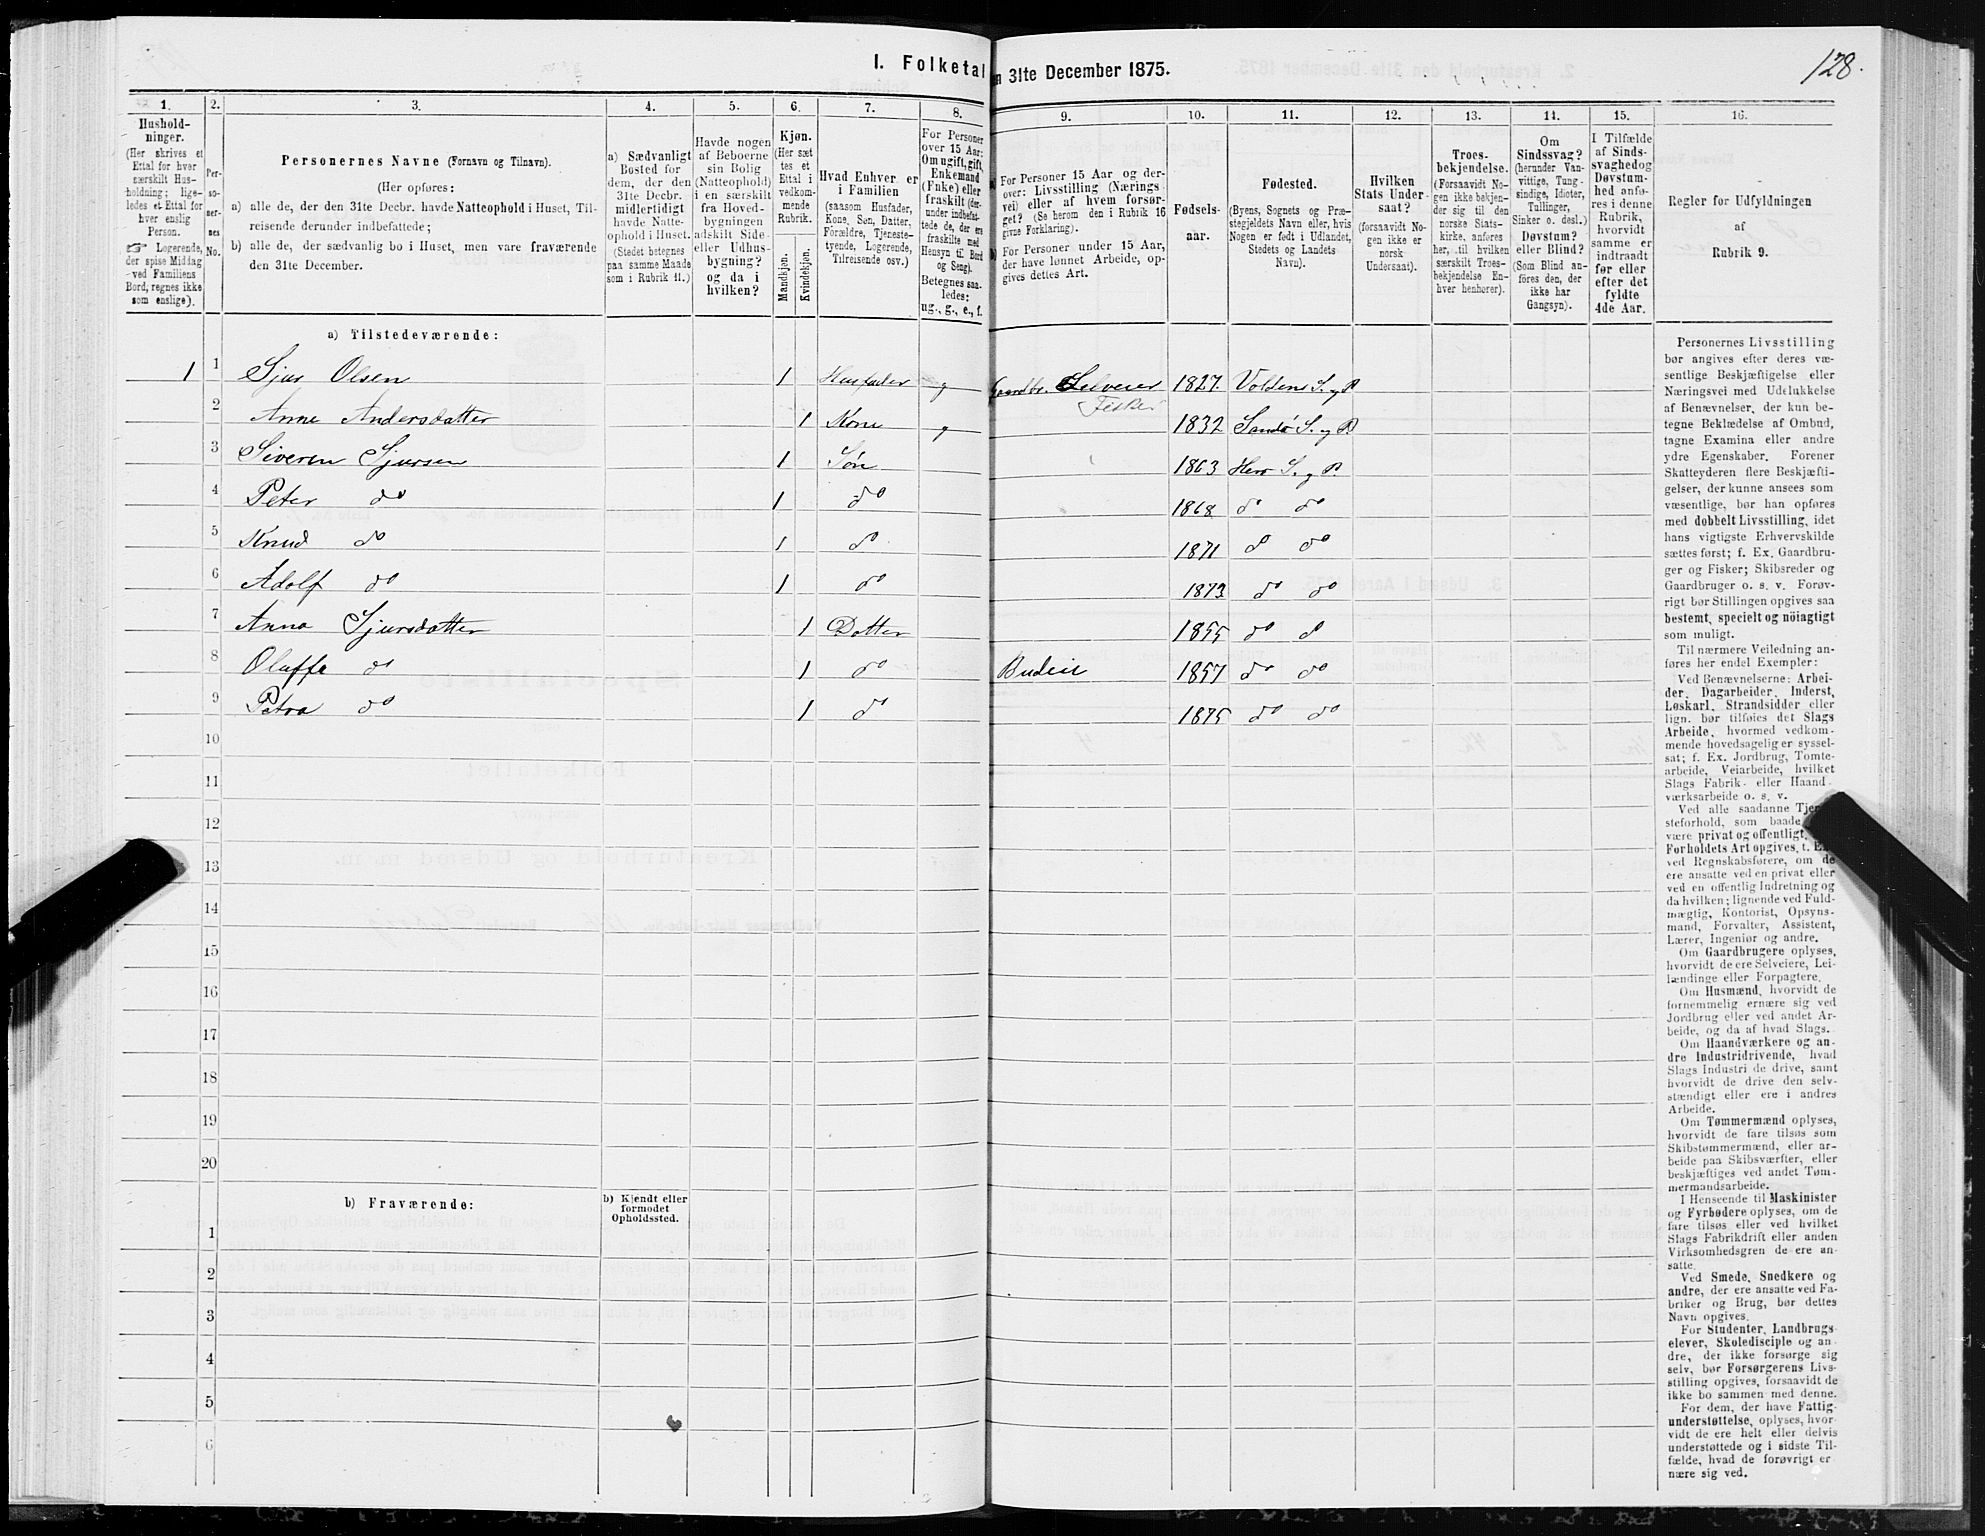 128.
I. Folketal
n 31te December 1875.
1. 2. 3. 4. 5. 6. 7. 8. 9. 10. 11. 12. 13. 14. 15. 16.
Hushold-
ninger.
(Her skrives et
Ettal for hver
særskilt Hus-
holdning; lige-
ledes et Ettal for
hver enslig
Person.
☞ Logerende,
der spise Middag
ved Familiens
Bord, regnes ikke
som enslige).
Per-
so-
ner-
nes
No.
Personernes Navne (Fornavn og Tilnavn).
(Her opføres:
a) alle de, der den 31te Decbr. havde Natteophold i Huset, Til-
reisende derunder indbefattede;
b) alle de, der sædvanlig bo i Huset, men vare fraværende
den 31te December.
a) Sædvanligt
Bosted for
dem, der den
31te Decbr.
midlertidigt
havde Natte-
ophold i Huset.
(Stedet betegnes
paa samme Maade
som i Rubrik 11.)
Havde nogen
af Beboerne
sin Bolig
(Natteophold)
i en særskilt
fra Hoved-
bygningen
adskilt Side-
eller Udhus-
bygning?
og da i
hvilken?
Kjøn.
(Her sæt
tes et
Ettal i
vedkom-
mende
Rubrik.
Mandkjøn.
Kvindekjøn.
Hvad Enhver er
i Familien
(saasom Husfader,
Kone, Søn, Datter,
Forældre, Tjeneste-
tyende, Logerende,
Tilreisende osv.)
For Personer
over 15 Aar:
Om ugift, gift,
Enkemand
(Enke) eller
fraskilt (der-
under indbefat-
tede de, der ere
fraskilte med
Hensyn til Bord
og Seng).
Betegnes saa-
ledes:
ug., g., e., f.
For Personer 15 Aar og der-
over: Livsstilling (Nærings
vei) eller af hvem forsør-
get? (Se herom den i Rubrik 16
givne Forklaring).
For Personer under 15 Aar,
der have lønnet Arbeide, op-
gives dettes Art.
Fødsels-
aar.
Fødested.
(Byens, Sognets og Præ-
stegjeldets Navn eller, hvis
Nogen er født i Udlandet,
Stedets og Landets
Navn).
Hvilken
Stats Under-
saat?
(forsaavidt No-
gen ikke er
norsk
Undersaat).
Troes-
bekjendelse.
(Forsaavidt No-
gen ikke bekjen-
der sig til den
norske Stats-
kirke, anføres
her, til hvilken
særskilt Troes-
bekjendelse En-
hver henhører).
Om
Sindssvag?
(herunder Van-
vittige, Tung-
sindige, Idioter,
Tullinger,
Sinker o. desl.)
Døvstum?
eller Blind?
(Som Blind an-
føres den, der
ikke har
Gangsyn).
I Tilfælde
af Sinds-
svaghedog
Døvstum-
hed anfø-
res i denne
Rubrik,
hvorvidt
samme er
indtraadt
før eller
efter det
fyldte
4de Aar.
Regler for Udfyldningen
af
Rubrik 9.
a) Tilstedeværende:
1 1 Sjur Olsen 1 Husfader g Gaardbr. Selveier 1827 Volden S. og P
Fisker
2 Anne Andersdatter 1 Kone g 1832 Sandø S. og P.
3 Siveren Sjursen 1 Søn 1863 Herø S. og P.
4 Peter do 1 do 1868 do do
5 Knud do 1 do 1871 do do
6 Adolf do 1 do 1873 do do
7 Anna Sjursdatter 1 Datter 1855 do do
8 Oluffa do 1 do Budeie 1857 do do
9 Petra do 1 do 1875 do do
10
11
12
13
14
15
16
17
18
19
20
b) Fraværende:
b) Kjendt eller
formodet
Opholdssted.
1
2
3
4
5
6
Personernes Livsstilling
bør angives efter deres væ-
sentlige Beskjæftigelse eller
Næringsvei med Udelukkelse
af Benævnelser, der kun be-
tegne Beklædelse af Ombud,
tagne Examina eller andre
ydre Egenskaber. Forener
Skatteyderen flere Beskjæfti-
gelser, der kunne ansees som
væsentlige, bør han opføres
med dobbelt Livsstilling, idet
hans vigtigste Erhvervskilde
sættes først; f. Ex. Gaardbru-
ger og Fisker; Skibsreder og
Gaardbruger o. s. v. Forøv-
rigt bør Stillingen opgives saa
bestemt, specielt og nöiagtigt
som muligt.
Til nærmere Veiledning an-
føres her endel Exempler:
Ved Benævnelserne: Arbei-
der, Dagarbeider, Inderst,
Løskarl, Strandsidder eller
lign. bør tilføies det Slags
Arbeide, hvormed vedkom-
mende hovedsagelig er syssel-
sat; f. Ex. Jordbrug, Tomte-
arbeide, Veiarbeide, hvilket
Slags Fabrik- eller Haand-
værksarbeide o. s. v.
Ved alle saadanne Tjene-
steforhold, som baade
være privat og offentligt,
Forholdets Art opgives, t. Ex.
ved Regnskabsførere, om de
ere ansatte ved en privat eller
ved en offentlig Indretning og
da hvilken; lignende ved Fuld-
mægtig, Kontorist, Opsyns-
mand, Forvalter, Assistent,
Lærer, Ingeniør og andre.
Om Gaardbrugere oplyses,
hvorvidt de ere Selveiere, Lei-
lændinge eller Forpagtere.
Om Husmænd, hvorvidt de
fornemmelig ernære sig ved
Jordbrug eller ved andet Ar-
beide, og da af hvad Slags.
Om Haandværkere og an-
dre Industridrivende, hvad
Slags Industri de drive, samt
hvorvidt de drive den selv-
stændigt eller ere i andres
Arbeide.
Om Tømmermænd oplyses,
hvorvidt de fare tilsøs som
Skibstømmermænd, eller ar-
beide paa Skibsværfter, eller
beskjæftiges ved andet Tøm-
mermandsarbeide.
I Henseende til Maskinister
og Fyrbødere oplyses, om de
fare tilsøs eller ved hvilket
Slags Fabrikdrift eller anden
Virksomhedsgren de ere an-
satte.
Ved Smede, Snedkere og
andre, der ere ansatte ved Fa-
briker og Brug, bør dettes
Navn opgives.
For Studenter, Landbrugs-
elever, Skoledisciple og an-
dre, der ikke forsørge sig
selv, bør Forsørgerens Livs-
stilling opgives, forsaavidt de
ikke bo sammen med denne.
For dem, der have Fattig-
understøttelse, oplyses, hvor-
vidt de ere helt eller delvis
understøttede og i sidste Til-
fælde, hvad de forøvrigt er-
nære sig ved.